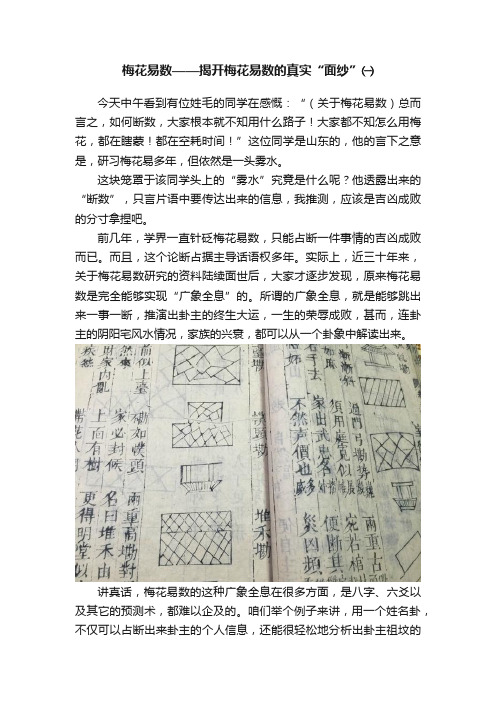 梅花易数——揭开梅花易数的真实“面纱”㈠
今天中午看到有位姓毛的同学在感慨：“（关于梅花易数）总而
言之，如何断数，大家根本就不知用什么路子！大家都不知怎么用梅
花，都在瞎蒙！都在空耗时间！”这位同学是山东的，他的言下之意
是，研习梅花易多年，但依然是一头雾水。
这块笼罩于该同学头上的“雾水”究竟是什么呢？他透露出来的
“断数”，只言片语中要传达出来的信息，我推测，应该是吉凶成败
的分寸拿捏吧。
前几年，学界一直针砭梅花易数，只能占断一件事情的吉凶成败
而已。而且，这个论断占据主导话语权多年。实际上，近三十年来，
关于梅花易数研究的资料陆续面世后，大家才逐步发现，原来梅花易
数是完全能够实现“广象全息”的。所谓的广象全息，就是能够跳出
来一事一断，推演出卦主的终生大运，一生的荣辱成败，甚而，连卦
主的阴阳宅风水情况，家族的兴衰，都可以从一个卦象中解读出来。
兩重古
宛若棺
便斷其
災凶頻
不然聲價也
堆禾勘
兩重高勘對
名曰堆禾由
更得明堂似
勘如幞頭
家必封候
上面有樹
讲真话，梅花易数的这种广象全息在很多方面，是八字、六爻以
及其它的预测术，都难以企及的。咱们举个例子来讲，用一个姓名卦，
不仅可以占断出来卦主的个人信息，还能很轻松地分析出卦主祖坟的